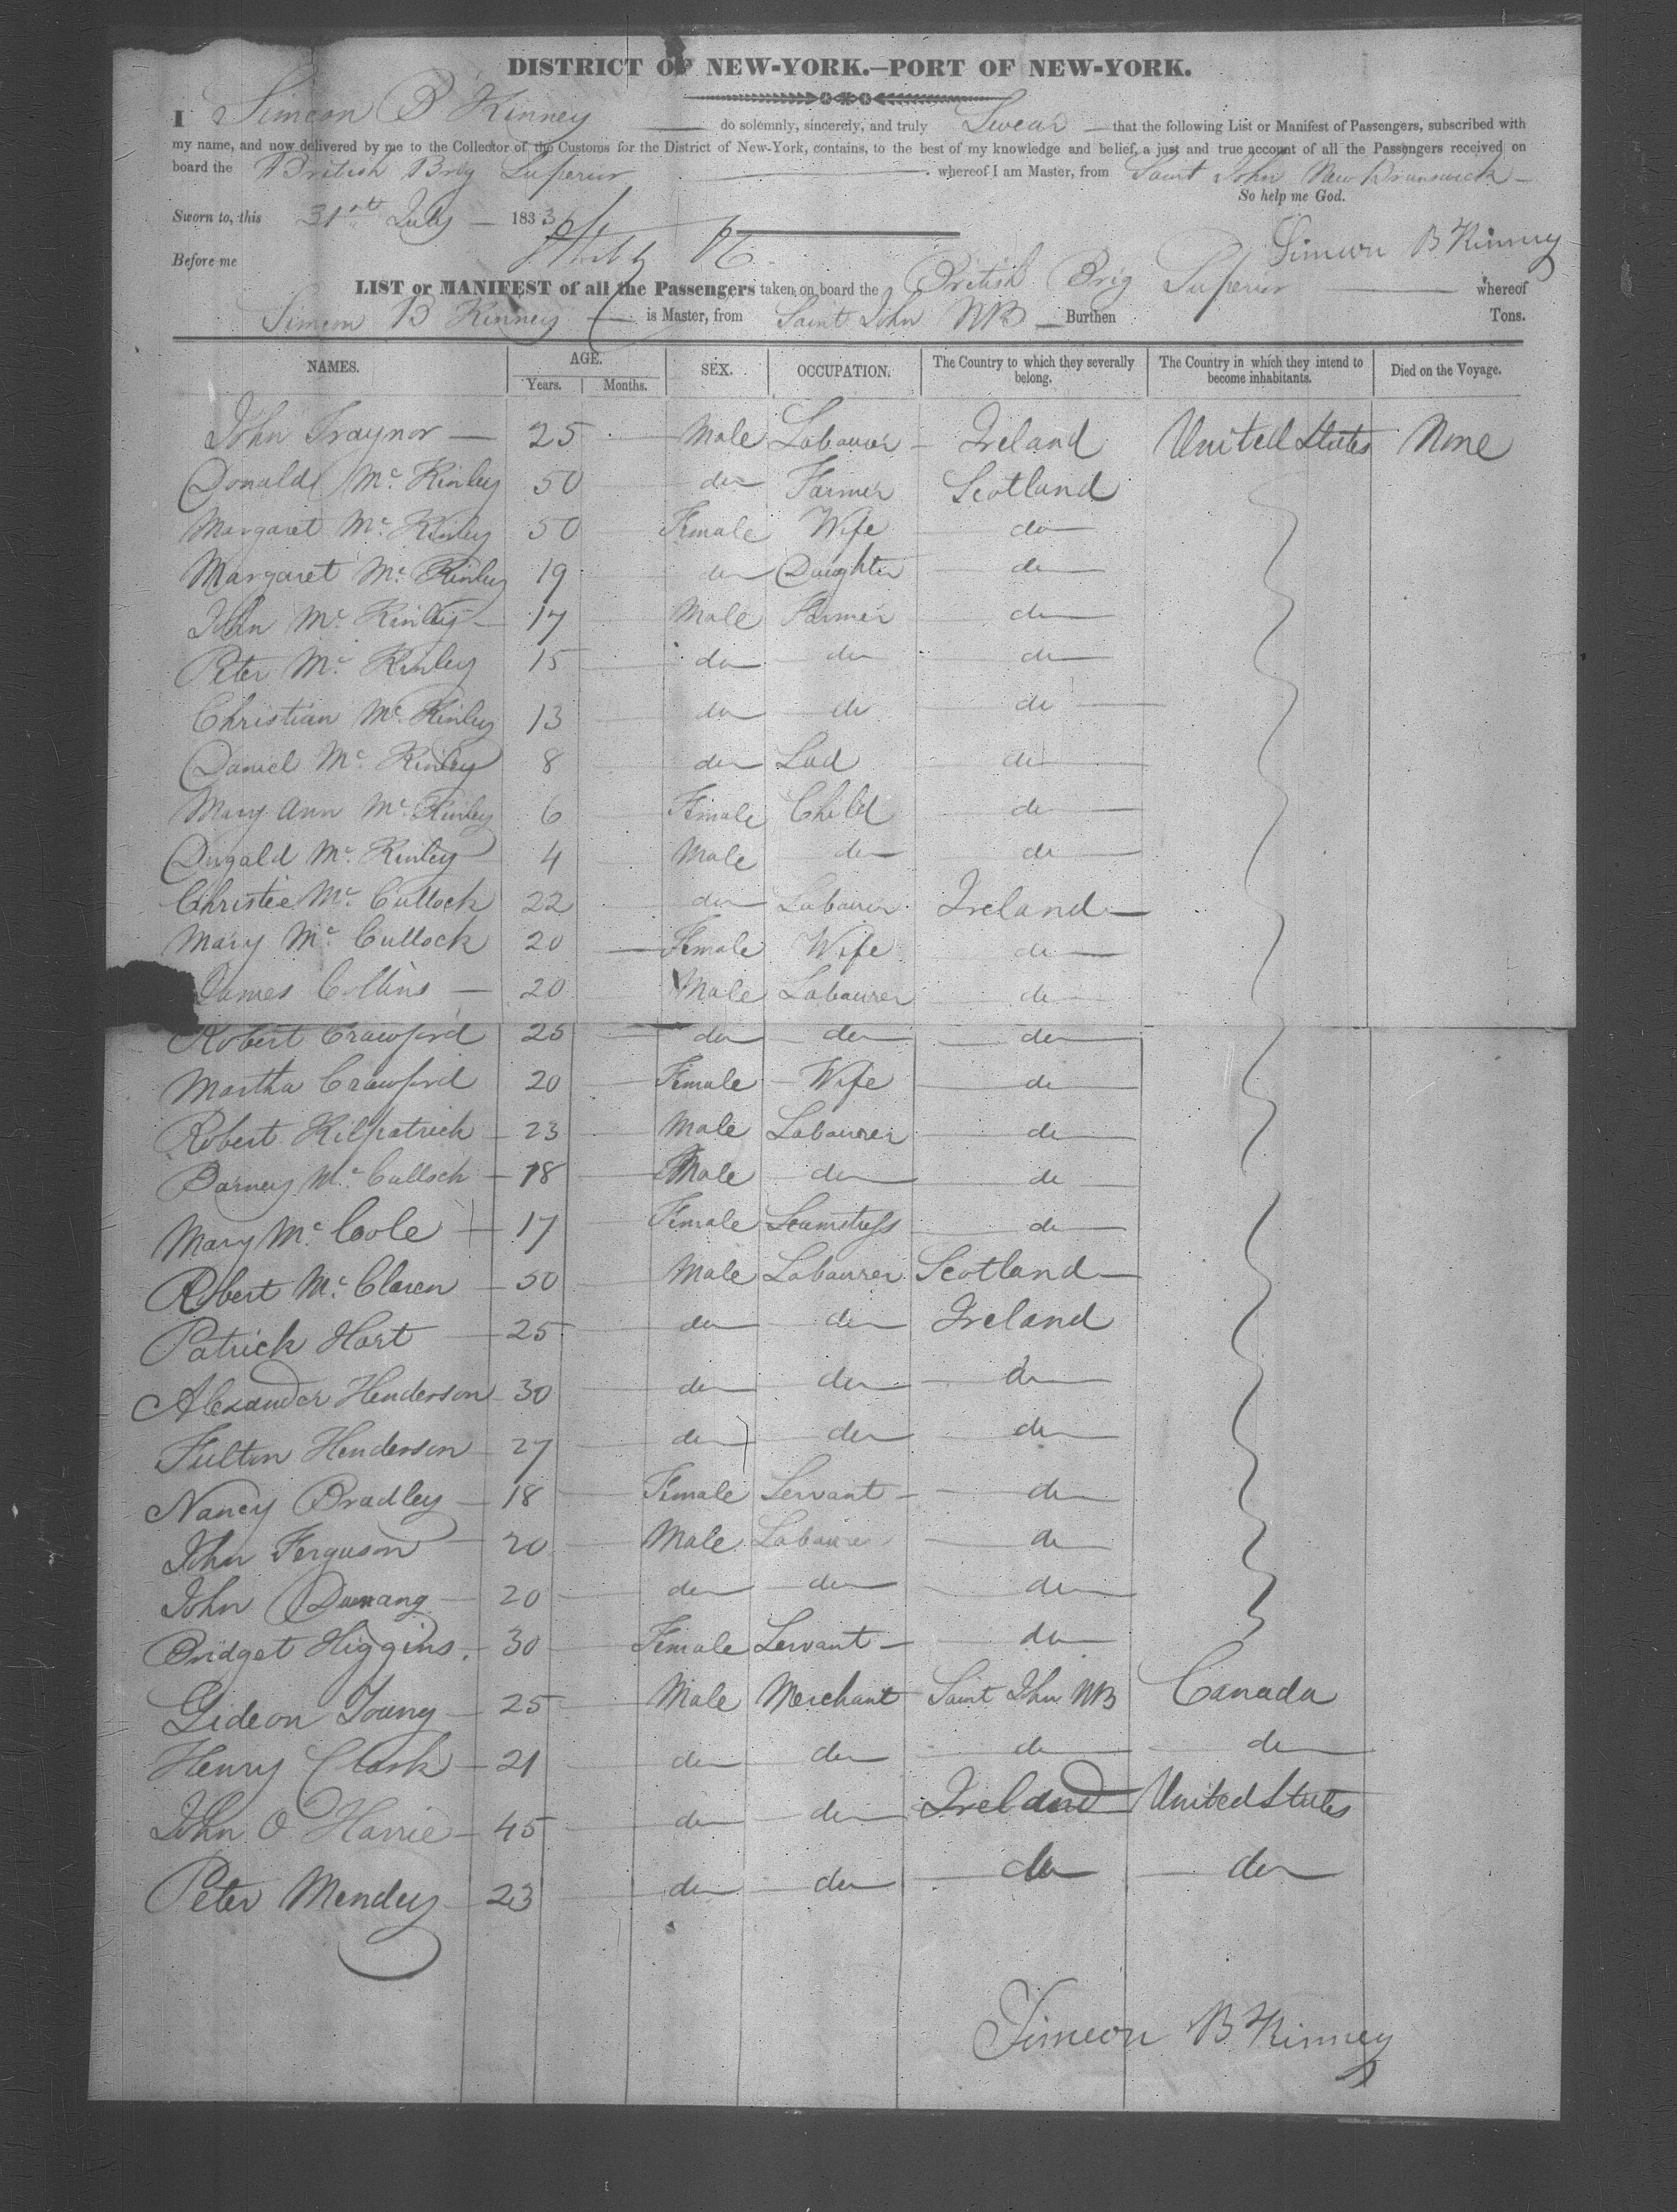 DISTRICT OF NEW-YORK.—PORT OF NEW-YORK.
I Simeon B Kinney do solemnly, sincerely, and truly Swear that the following List or Manifest of Passengers, subscribed with
my name, and now delivered by me to the Collector of the Customs for the District of New-York, contains, to the best of my knowledge and belief, a just and true account of all the Passengers received on
board the British Brig Superior whereof I am Master, from Saint John New Brunswick
So help me God.
Sworn to, this 31st July 1833
Simeon B Kinney
Before me
LIST or MANIFEST of all the Passengers taken on board the British Brig Superior whereof
Simeon B Kinney is Master, from Saint John NB Burthen Tons.
NAMES. AGE. Years. Months. SEX. OCCUPATION. The Country to which they severally belong. The Country in which they intend to become inhabitants. Died on the Voyage.
John Traynor — 25 Male Labourer Ireland United States None
Donald Mc Kinley 50 do Farmer Scotland
Margaret Mc Kinley 50 Female Wife do
Margaret Mc Kinley 19 do Daughter do
John Mc Kinley 17 Male Farmer do
Peter Mc Kinley 15 do do do
Christian Mc Kinley 13 do do do
Daniel Mc Kinley 8 do Lad do
Mary Ann Mc Kinley 6 Female Child do
Dugald Mc Kinley 4 Male do do
Christie Mc Cullock 22 do Labourer Ireland
Mary Mc Cullock 20 Female Wife do
James Collins — 20 Male Labourer do
Robert Crawford 25 do do do
Martha Crawford 20 Female Wife do
Robert Kilpatrick 23 Male Labourer do
Barney Mc Culloch 18 Male do do
Mary Mc Cole 17 Female Seamstress do
Robert Mc Claren 50 Male Labourer Scotland
Patrick Hart 25 do do Ireland
Alexander Henderson 30 do do do
Fulton Henderson 27 do do do
Nancy Bradley 18 Female Servant do
John Ferguson 20 Male Labourer do
John 20 do do do
Bridget Higgins 30 Female Servant do
Gideon Young 25 Male Merchant Saint John NB Canada
Henry Clark 21 do do do do
John O Harrie 45 do do Ireland United States
Peter Mendey 23 do do do do
Simeon B Kinney